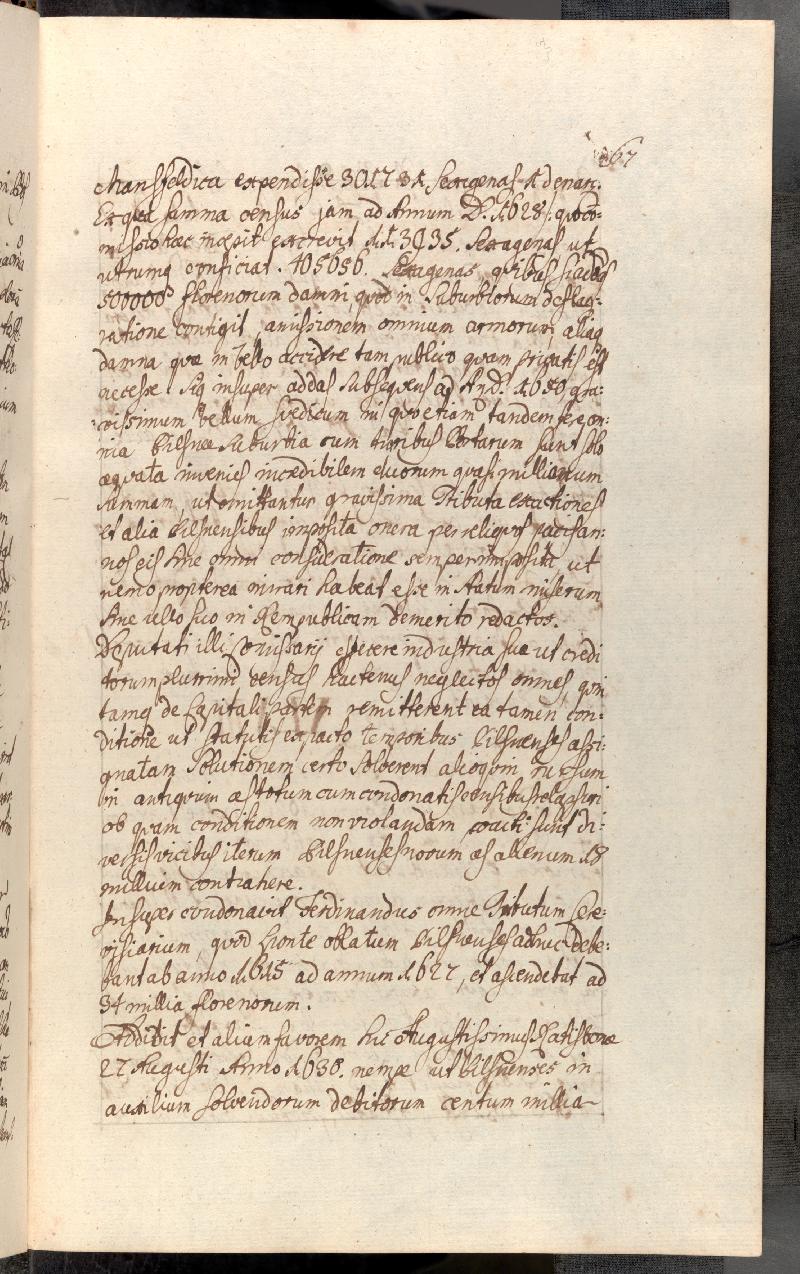 67
Mansfeldica expendisse 301734 Sexagenas 4 denar.
Ex qua summa census jam ad Annum D. 1628 /: quo co-
missio hæc incepit excrevit 103935. Sexagenas ut
utrumq conficiat. 405656. Sexagenas, quibus si addas
500000 florenorum damni, quod in Suburbiorum deflag-
ratione contigit, amissionem omnium armorum, aliaq
damna quæ in bello accidere tam publico quam privatis est
necesse. Siq insuper addas subsequens ad An. D. 1630 gra-
vissimum bellum Svedicum in quo etiam tandem fere om-
nia Pilsnæ Suburbia cum turribus Portarum sunt solo
æquata invenies incredibilem duorum quasi millionum
summam, ut omittantur gravissima Tributa exactiones
et alia Pilsnensibus imposita onera per reliquos pacis an-
nos eis sine omni consideratione semper imposita, ut
nemo propterea mirari habeat esse in statum miserum
sine ullo suo in Rempublicam demerito redactos.
Deputati illi Comissarij effecere industria sua ut credi
torum plurimi census hactenus neglectos omnes, quin
tamq de Capitali partem remitterent ea tamen con-
ditione ut statutis ex pacto temporibus Pilsnenses assi-
gnatam solutionem certo solverent alioquin rursum
in antiquum æs totum cum condonatis censibus relapsuri
ob quam conditionem non violandam coacti sunt di-
versis vicibus iterum Pilsnenses novum æs alienum 18
millium contrahere.
Insuper condonavit Ferdinandus omne Tributum Cere-
visiarium, quod sponte oblatum Pilsnenses adhuc debe-
bant ab anno 1615 ad annum 1627, et ascendebat ad
34 millia florenorum.
Addidit et alium favorem hic Augustissimus Ratisbonæ
27 Augusti Anno 1630. nempe ut Pilsnenses in
auxilium solvendorum debitorum centum millia